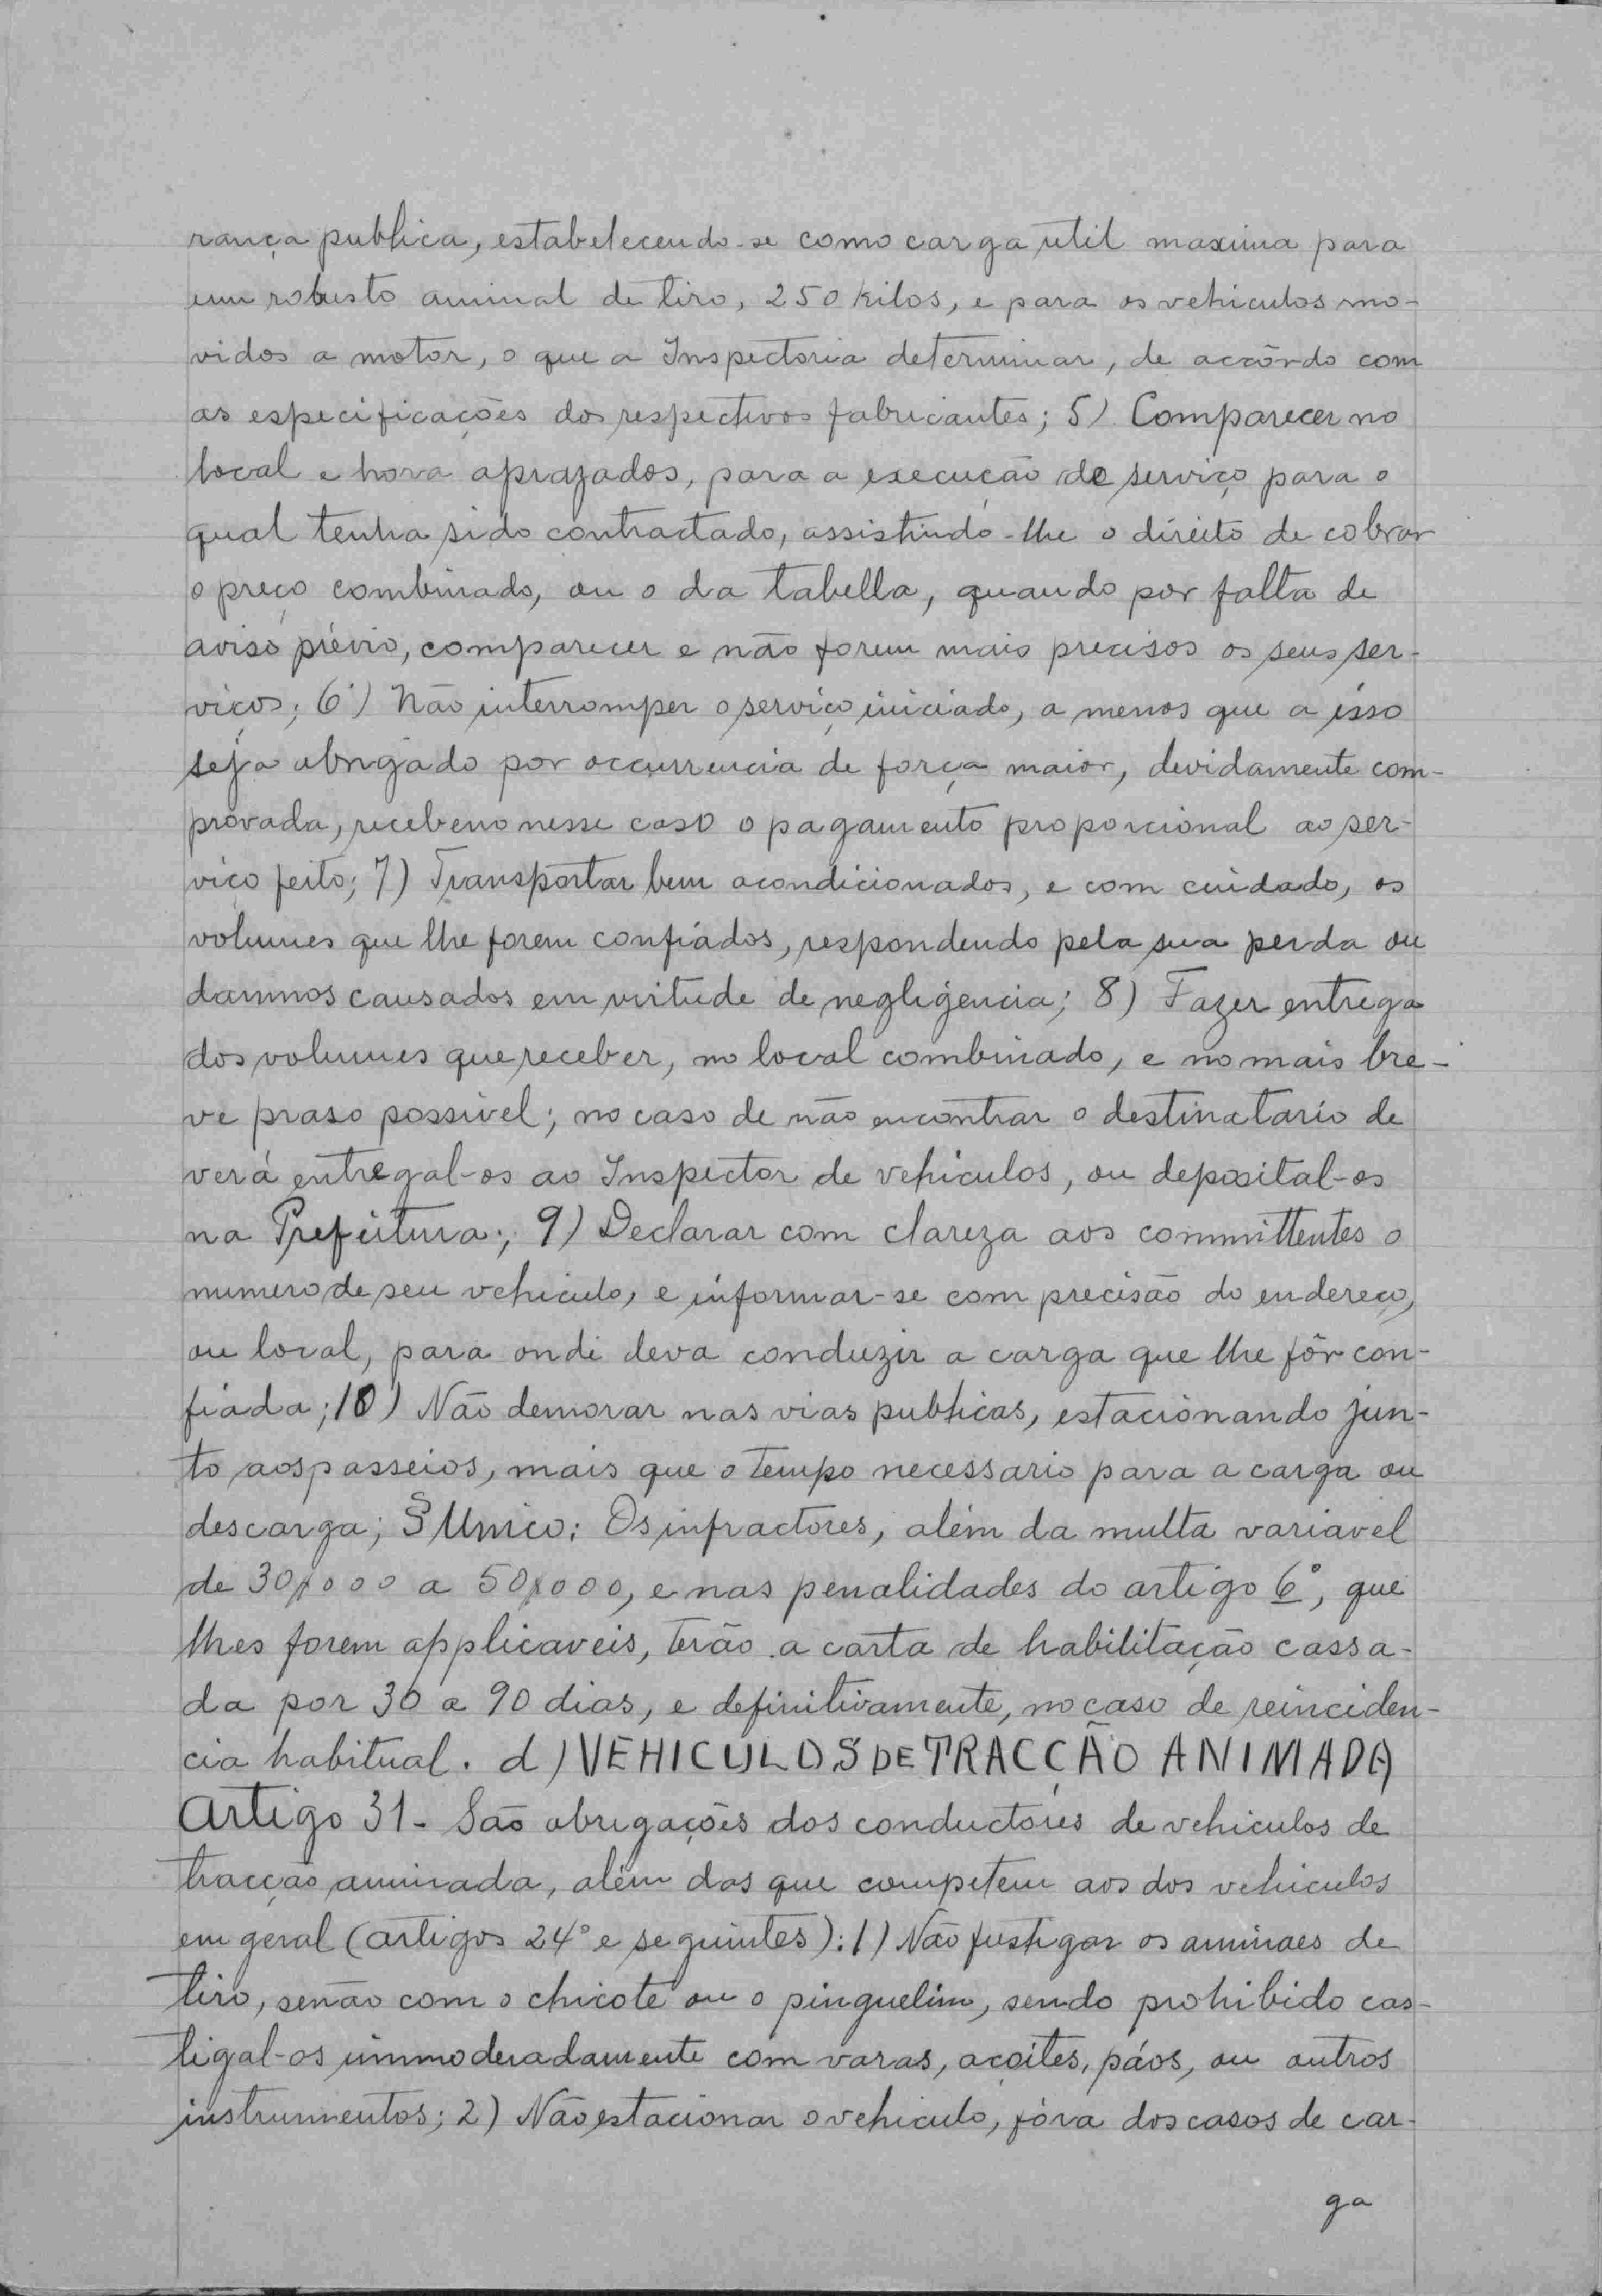 rança publica, estabelecendo-se como carga util maxima para
um robusto animal de tiro, 250 kilos, e para os vehiculos mo-
vidos a motor, o que a Inspectoria determinar, de accôrdo com
as especificações dos respectivos fabricantes; 5) Comparecer no
local e hora aprazados, para a execução do serviço para o
qual tenha sido contractado, assistindo-lhe o direito de cobrar
o preço combinado, ou o da tabella, quando por falta de
aviso prévio, comparecer e não forem mais precisos os seus ser-
viços; 6) Não interromper o serviço iniciado, a menos que a isso
seja obrigado por occurrencia de força maior, devidamente com-
provada, recebeno nesse caso o pagamento proporcional ao ser-
viço feito; 7) Transportar bem acondicionados, e com cuidado, os
volumes que lhe forem confiados, respondendo pela sua perda ou
damnos causados em virtude de negligencia; 8) Fazer entrega
dos volumes que receber, no local combinado, e no mais bre-
ve praso possivel; no caso de não encontrar o destinatario de
verá entregal-os ao Inspector de vehiculos, ou deposital-os
na Prefeitura; 9) Declarar com clareza aos committentes o
numero de seu vehiculo, e informar-se com precisão do endereço,
ou local, para onde deva conduzir a carga que lhe fôr con-
fiada; 10) Não demorar nas vias publicas, estacionando jun-
to aos passeios, mais que o tempo necessario para a carga ou
descarga; § Unico: Os infractores, além da multa variavel
de 30$000 a 50$000, e nas penalidades do artigo 6º, que
lhes forem applicaveis, terão a carta de habilitação cassa-
da por 30 a 90 dias, e definitivamente, no caso de reinciden-
cia habitual. d) VEHICULOS DE TRACCÇÃO ANIMADA
Artigo 31 - São obrigações dos conductores de vehiculos de
tracção animada, além das que competem aos dos vehiculos
em geral (artigos 24º e seguintes): 1) Não fustigar os animaes de
tiro, senão com o chicote ou o pinguelim, sendo prohibido cas-
tigal-os immoderadamente com varas, açoites, páos, ou outros
instrumentos; 2) Não estacionar o vehiculo, fóra dos casos de car-
ga